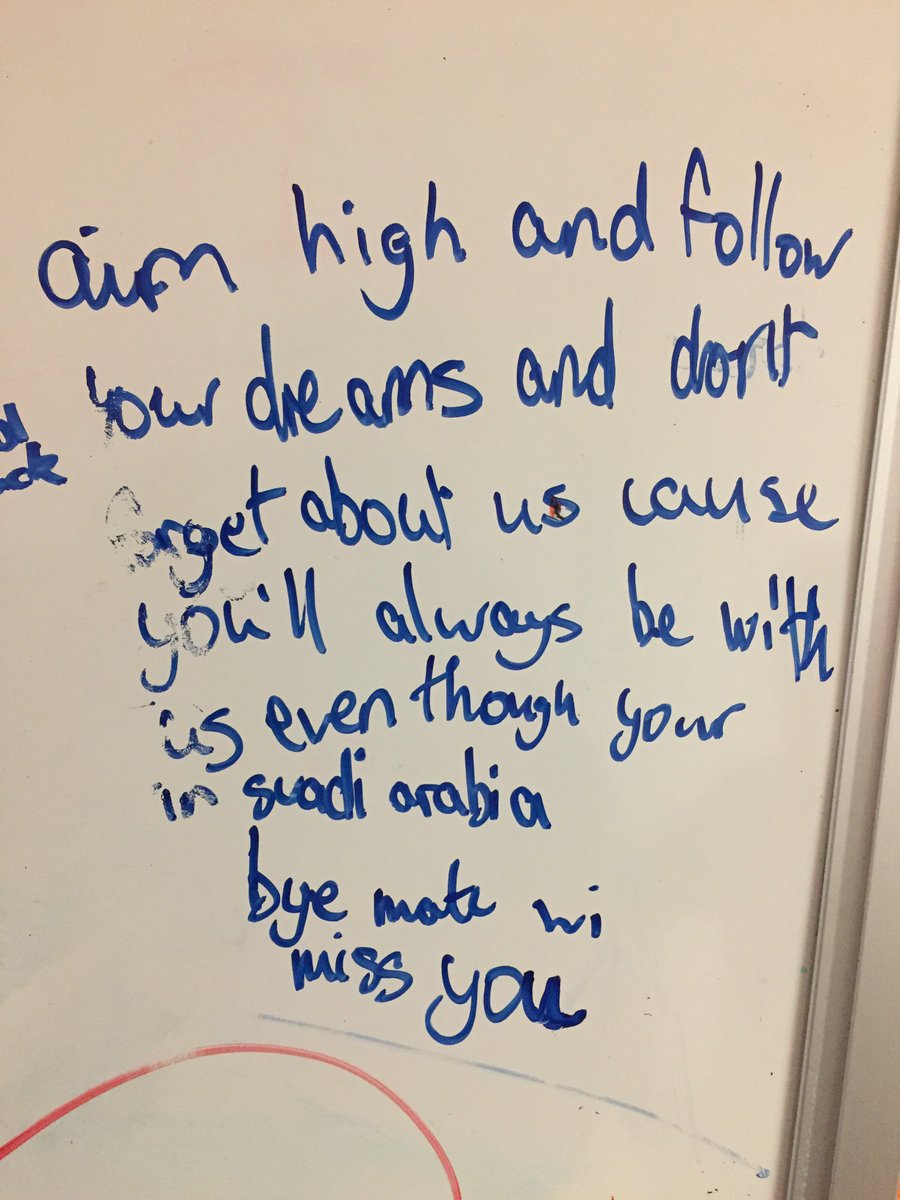 aim high and follow
your dreams and don't
forget about us cause
you'll always be with
us even though your
in suadi arabia
bye mate wi
miss you